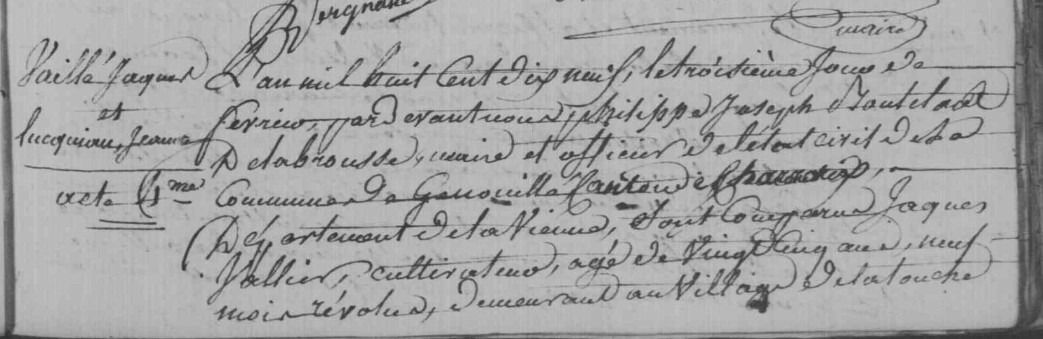 Vergnaud
maire
Vaillé Jaques
et
lucquiau, Jeanne
acte 4me
L'an mil huit Cent dix neuf, le troisième Jour de
fevrier, pardevant nous, philippe Joseph
Delabrousse, maire et officier de l'état civil de la
Commune de Genouillé Canton de Charroux,
Département de la Vienne, Sont Comparus Jaques
Vallier, cultivateur, agé de Vingt Cinq ans, neuf
mois révolus, demeurant au Village de la touche